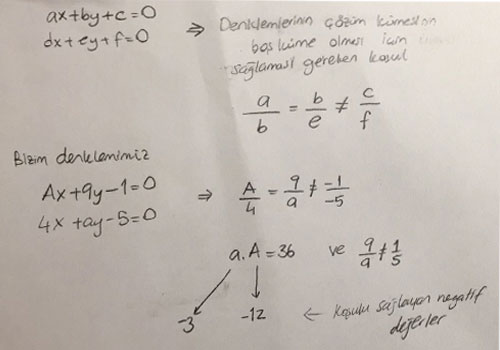 ax+by+c=0
dx+ey+f=0
⇒ Denklemlerinin çözüm kümesinin
boş küme olması için
sağlaması gereken koşul
a/b = b/e ≠ c/f
Bizim denklemimiz
Ax+9y-1=0
4x+ay-5=0
⇒ A/4 = 9/a ≠ -1/-5
a.A=36 ve 9/a ≠ 1/5
-3 -12 ← Koşulu sağlayan negatif
değerler